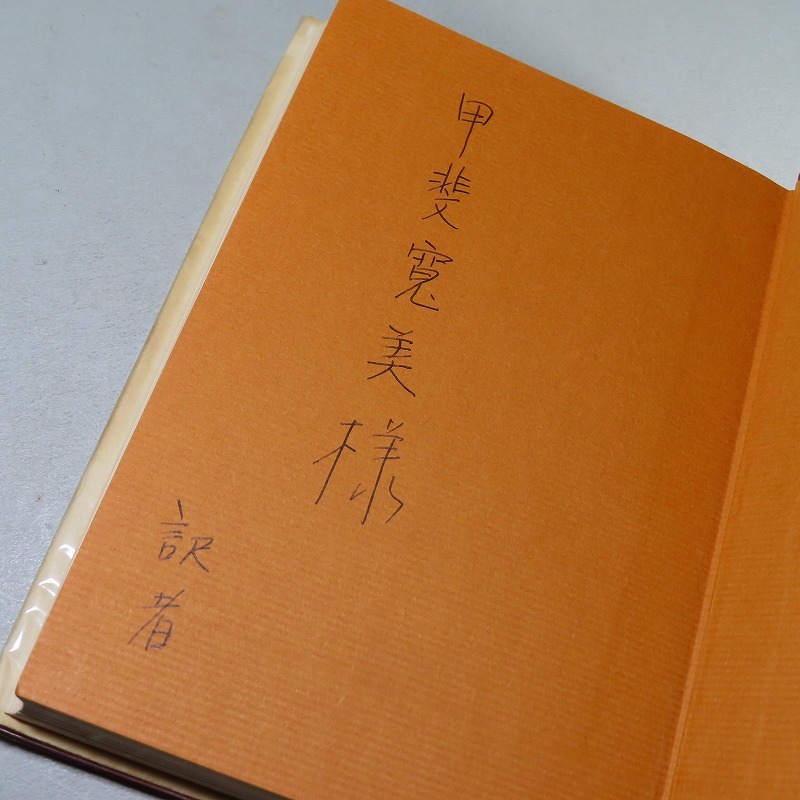 甲斐寛美様
訳者